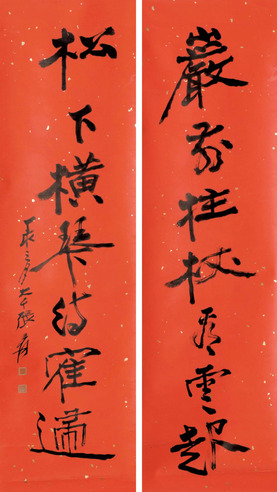 巖前拄杖看雲起
松下橫琴待寉歸
大千張爰